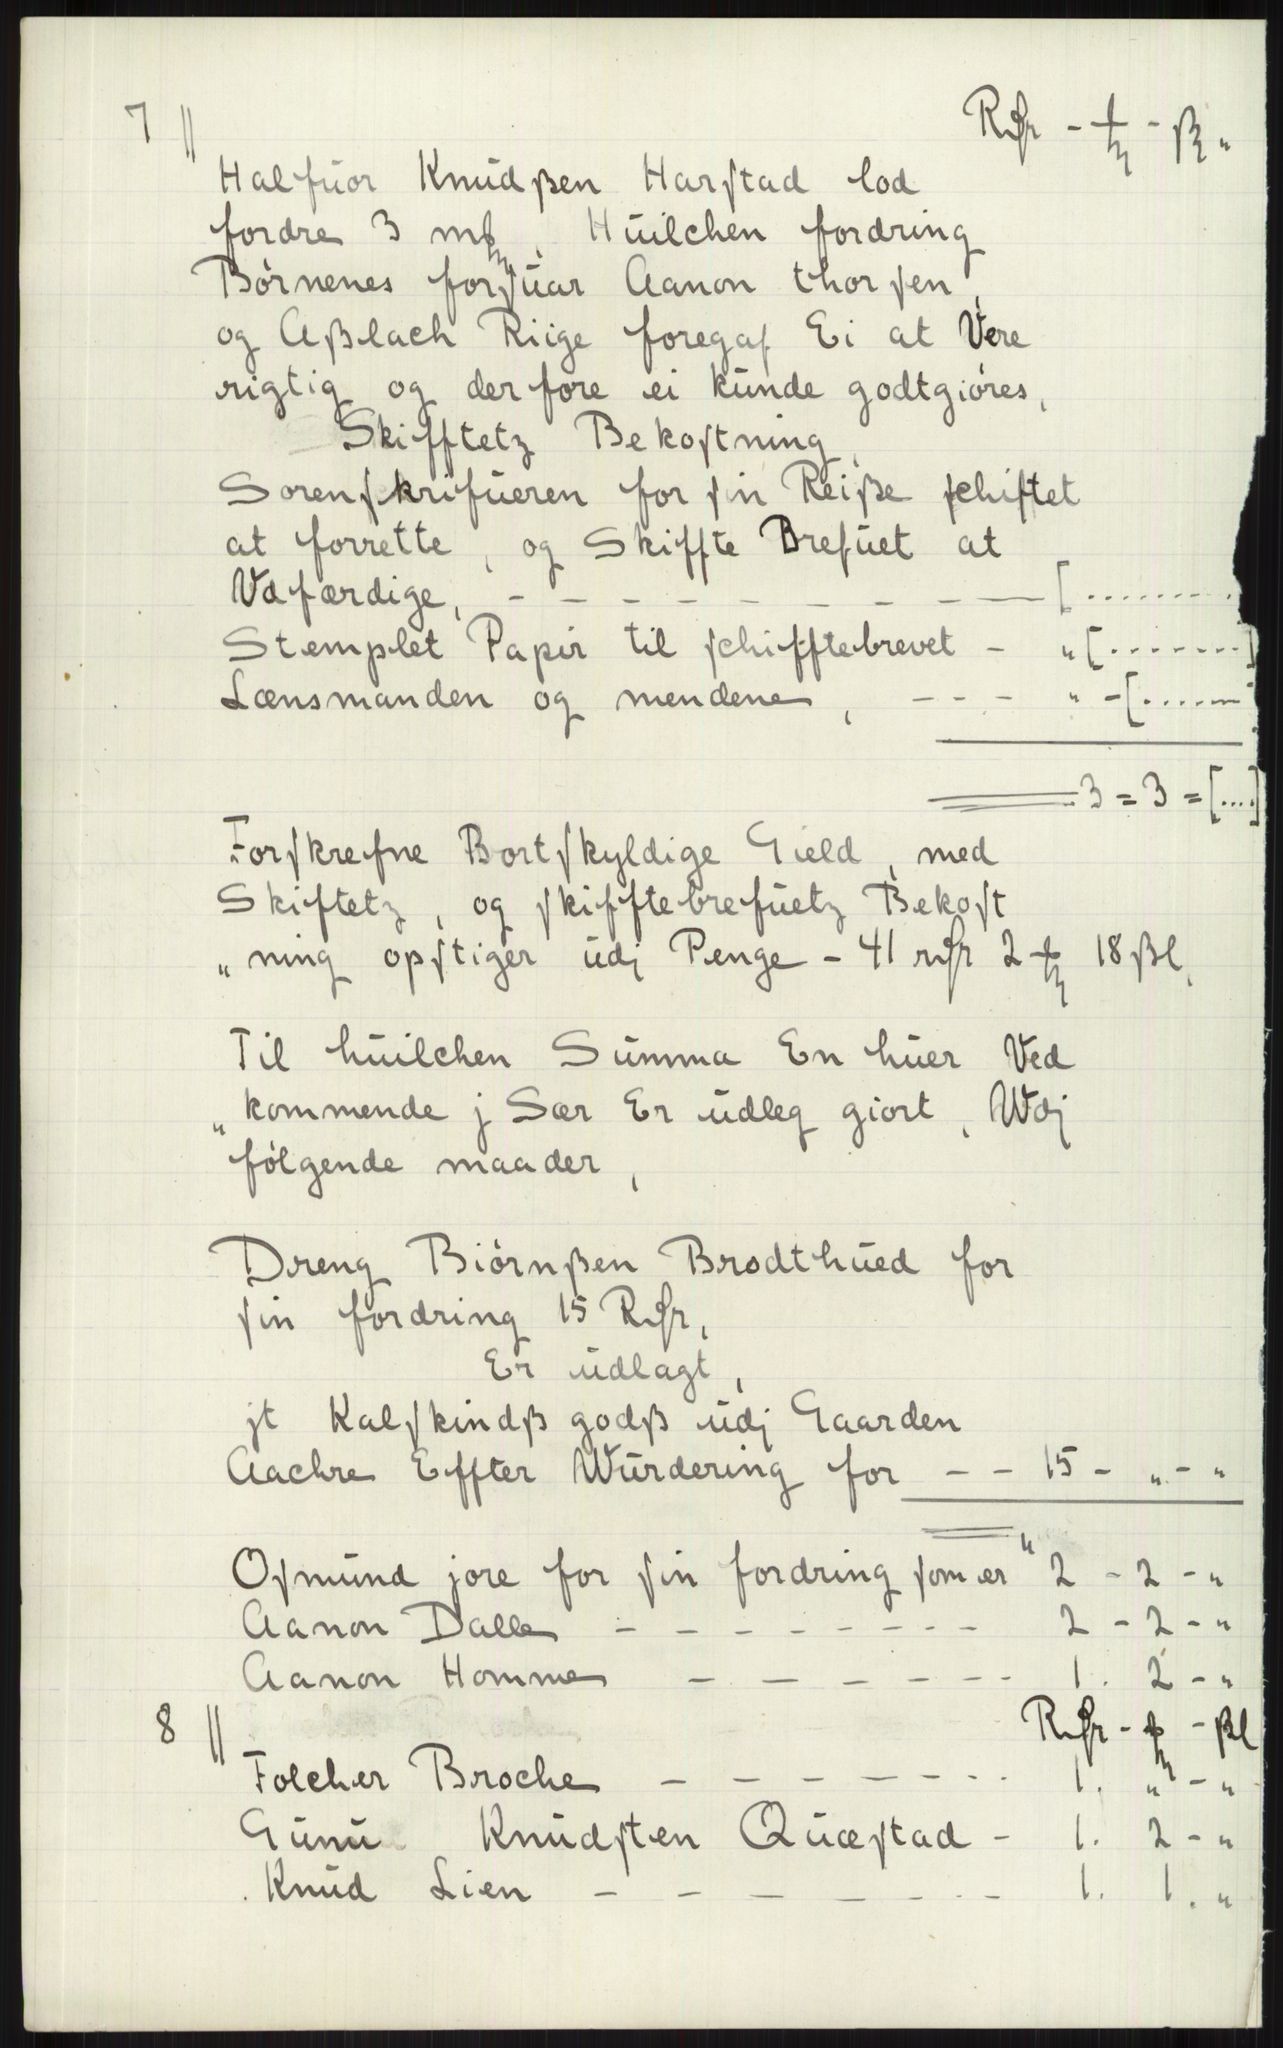 7 || Rdr - ₰ - ß "
Halfuor Knudßen Harstad lod
fordre 3 mk, Huilchen fordring
Børnenes forsuar Aanon thorsen,
og Aßlach Riige foregaf Ei at Vere
rigtig og derfore ei kunde godtgiøres,
Skifftetz Bekostning,
Sorenskrifueren for sin Reiße schiftet
at forrette, og Skiffte Brefuet at
Vdfærdige, - - - - - - - - - [.........
Stemplet Papir til schifftebrevet - " [........]
Lænsmanden og mendene, - - - " - [......
3 = 3 = [....]
Forskrefne Bortskyldige Gield, med
Skiftetz, og skifftebrefuetz Bekost
" ning opstiger udj Penge - 41 rdr 2 ₰ 18 ßl,
Til huilchen Summa En huer Ved
" kommende j Sær Er udleg giort, Wdj
følgende maader,
Dreng Biørnßen Brodthued for
sin fordring 15 Rdr,
Er udlagt,
jt Kalfskindß godß udj Gaarden
Aachre Effter Wurdering for - - 15 - " - "
Osmund jore for sin fordring som er " 2 - 2 - "
Aanon Dalle - - - - - - - - - 2 - 2 - "
Aanon Homme - - - - - - - 1. 2 - "
8 || Rdr - ₰ - ßl
Folcher Broche - - - - - - - 1. " - "
Gunu Knudsten Quæstad - 1. 2 - "
Knud Lien - - - - - - - - 1. 1. "